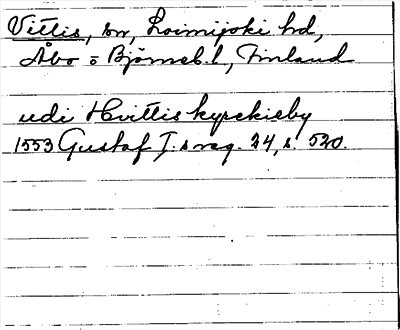 Vittis, sn, Loimijoki hd,
Åbo o Björneb. l, Finland
udi Hvittis kyrckieby
1553 Gustaf I:s reg. 24, s. 520.